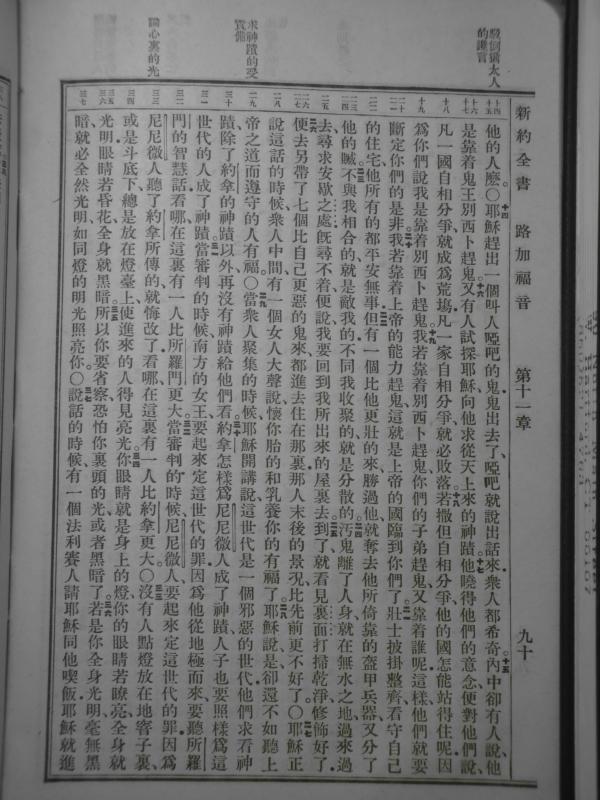 新約全書 路加福音 第十一章 九十
駁倒猶太人的讒言
求神蹟的受責備
論心裏的光
他的人麽○耶穌趕出一個叫人啞吧的鬼鬼出去了啞吧就說出話來衆人都希奇內中卻有人說他
是靠着鬼王別西卜趕鬼又有人試探耶穌向他求從天上來的神蹟他曉得他們的意念便對他們說
凡一國自相分爭就成爲荒塲凡一家自相分爭就必敗落若撒但自相分爭他的國怎能站得住呢因
爲你們說我是靠着別西卜趕鬼我若靠着別西卜趕鬼你們的子弟趕鬼又靠着誰呢這樣他們就要
斷定你們的是非我若靠着上帝的能力趕鬼這就是上帝的國臨到你們了壯士披掛整齊看守自己
的住宅他所有的都平安無事但有一個比他更壯的來勝過他就奪去他所倚靠的盔甲兵器又分了
他的贓不與我相合的就是敵我的不同我收聚的就是分散的汚鬼離了人身就在無水之地過來過
去尋求安歇之處旣尋不着便說我要回到我所出來的屋裏去到了就看見裏面打掃乾淨修飾好了
便去另帶了七個比自己更惡的鬼來都進去住在那裏那人末後的景况比先前更不好了○耶穌正
說這話的時候衆人中間有一個女人大聲說懷你胎的和乳養你的有福了耶穌說是卻還不如聽上
帝之道而遵守的人有福○當衆人聚集的時候耶穌開講說這世代是一個邪惡的世代他們求看神
蹟除了約拿的神蹟以外再沒有神蹟給他們看約拿怎樣爲尼尼微人成了神蹟人子也要照樣爲這
世代的人成了神蹟當審判的時候南方的女王要起來定這世代的罪因爲他從地極而來要聽所羅
門的智慧話看哪在這裏有一人比所羅門更大當審判的時候尼尼微人要起來定這世代的罪因爲
尼尼微人聽了約拿所傳的就悔改了看哪在這裏有一人比約拿更大○沒有人點燈放在地窖子裏
或是斗底下總是放在燈臺上使進來的人得見亮光你眼睛就是身上的燈你的眼睛若瞭亮全身就
光明眼睛若昏花全身就黑暗所以你要省察恐怕你裏頭的光或者黑暗了若是你全身光明毫無黑
暗就必全然光明如同燈的明光照亮你○說話的時候有一個法利賽人請耶穌同他喫飯耶穌就進